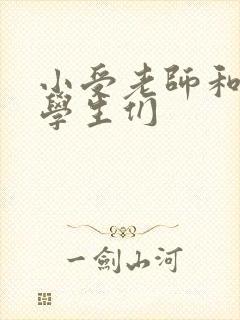 小受老師和
學生们
一劍山河